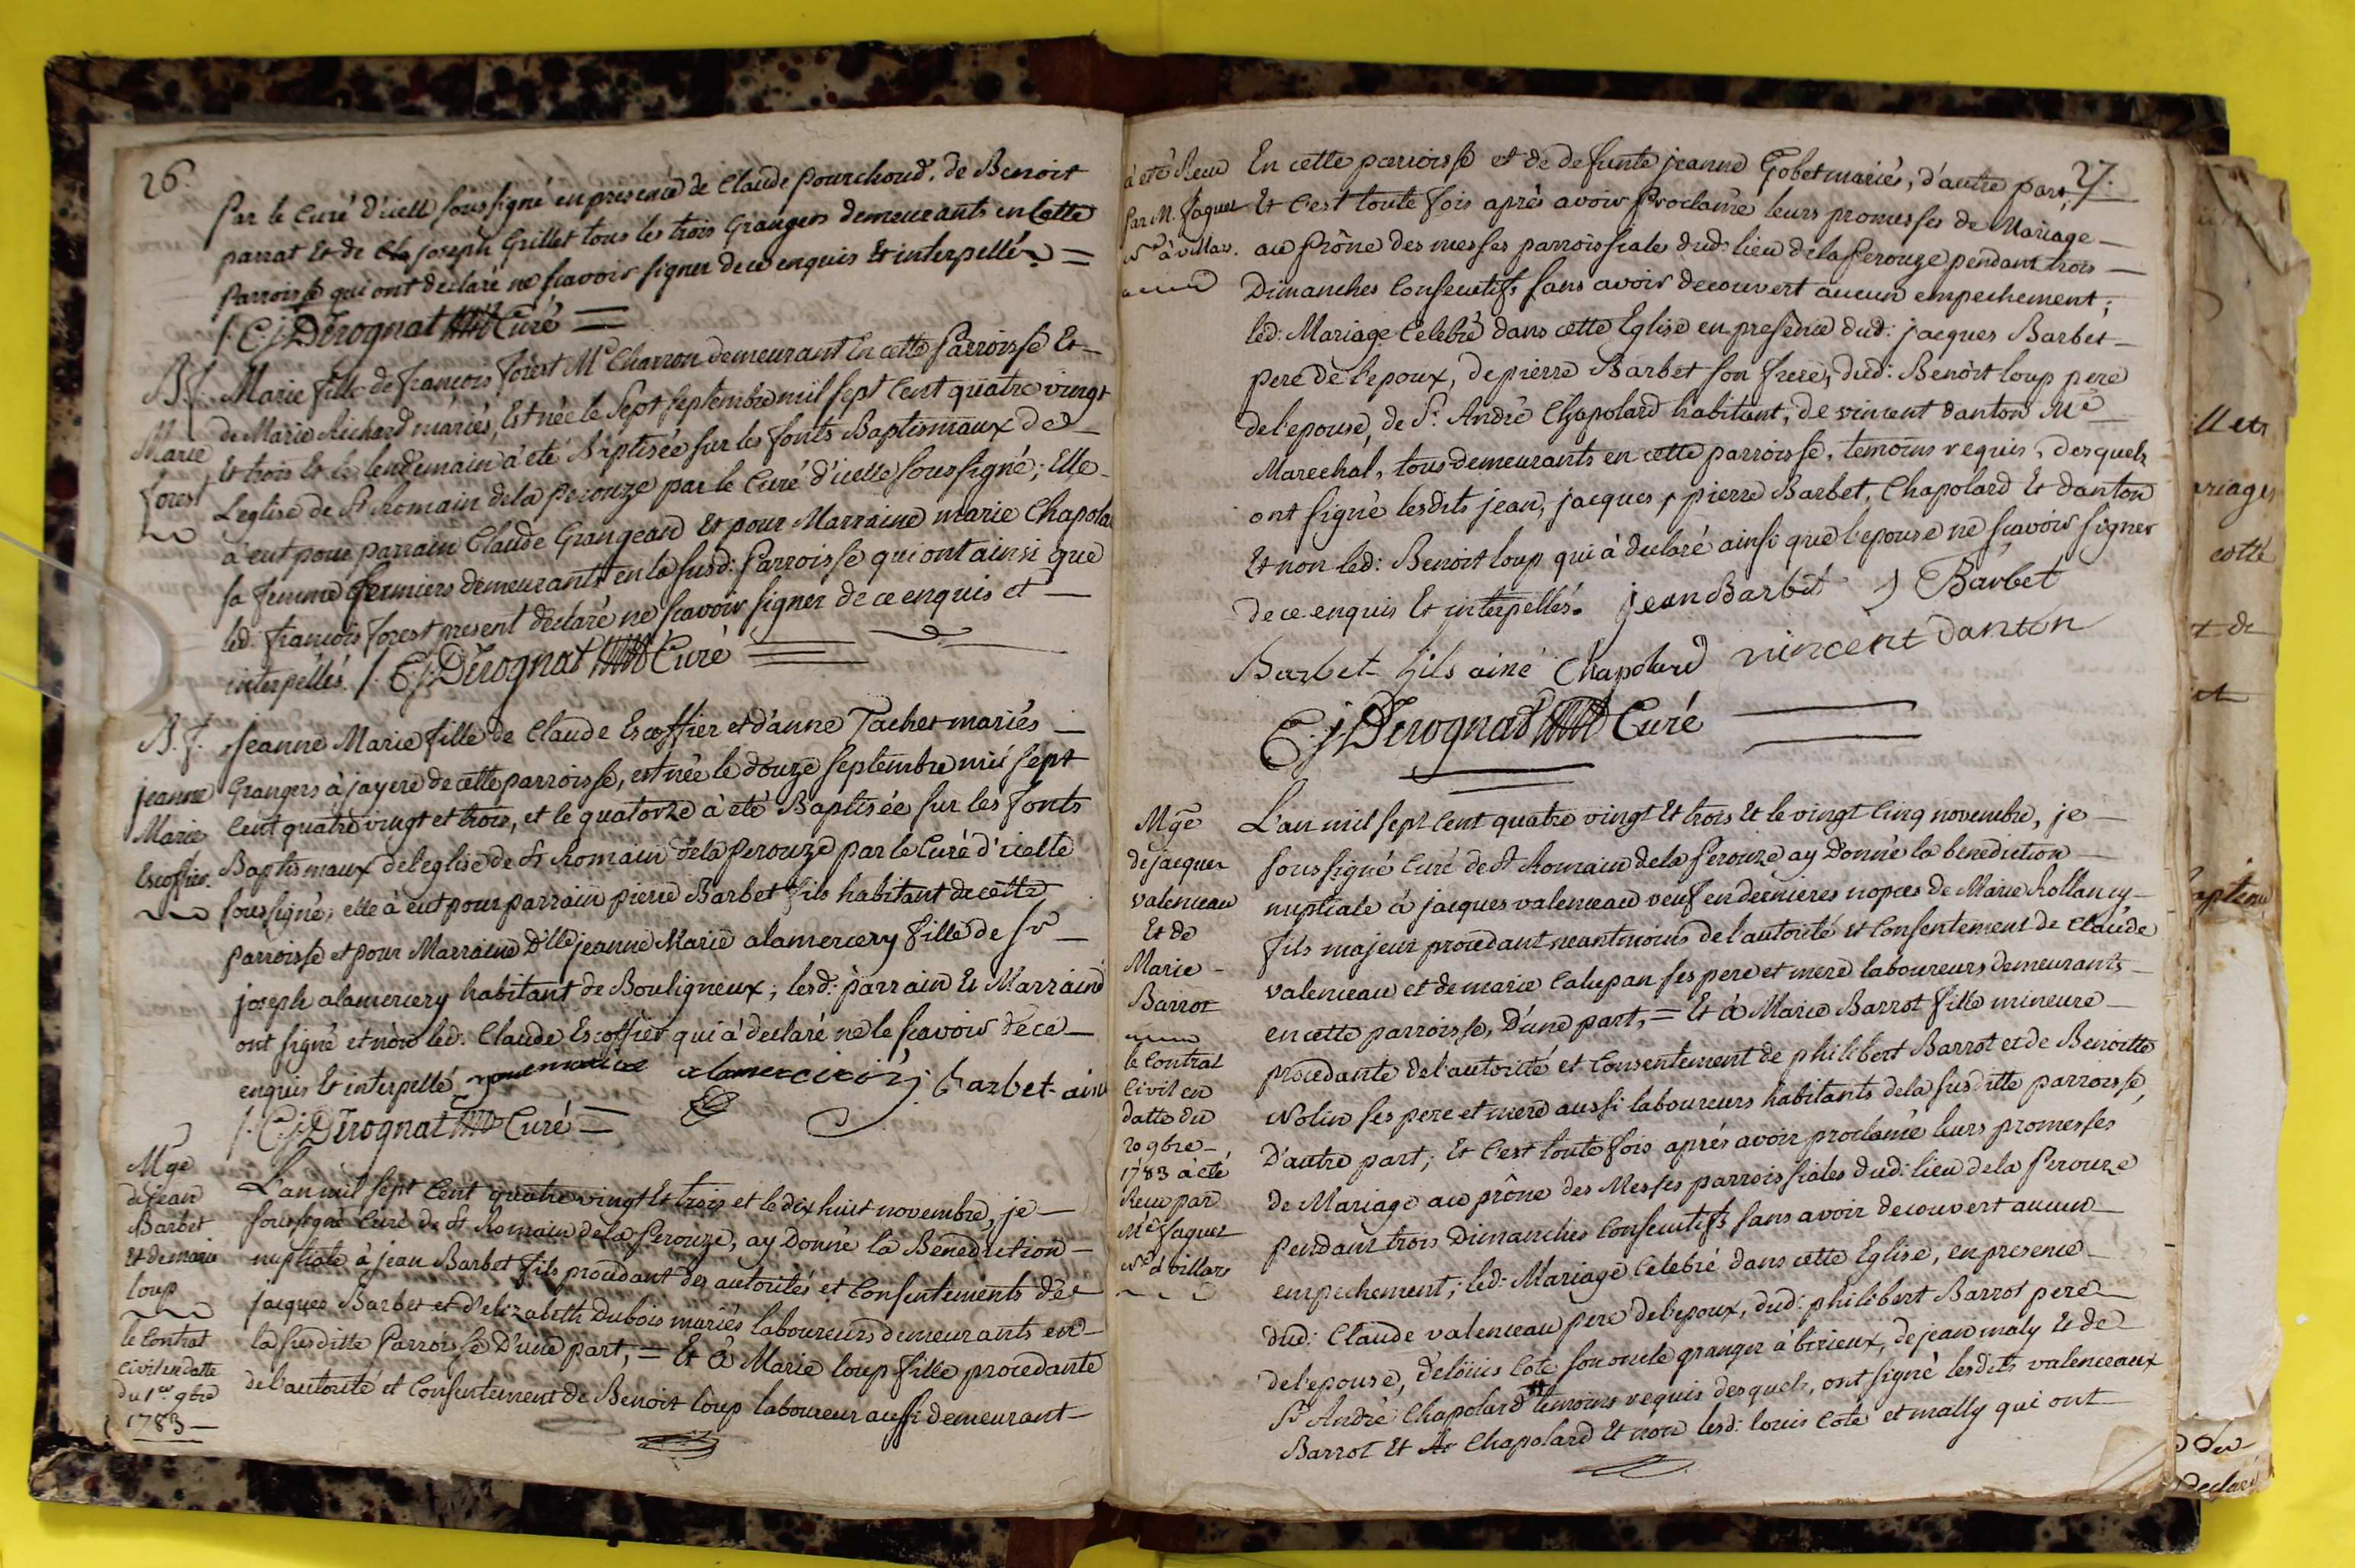 26.
par le Curé d'icelle soussigné en presence de Claude pourchoud, de Benoit
parrat Et de Cla joseph Grillet tous les trois Grangers demeurants en Cette
parroisse qui ont declaré ne scavoir signer de ce enquis Et interpellés =
/. C. j. Derognat Curé =
B. f.
Marie
forest
Marie fille de françois forest Me Charron demeurant En cette parroisse Et
de Marie Richard mariés, Est née le sept septembre mil sept Cent quatre vingt
Et trois Et le lendemain à été Baptisée sur les fonts Baptismaux de
L'eglise de St Romain de la perouze par le Curé d'icelle soussigné; Elle
à eut pour parrain Claude Grangeard Et pour Marraine marie Chapola
sa femme fermiers demeurants en la susd: parroisse qui ont ainsi que
led: françois forest present declaré ne scavoir signer de ce enquis et
interpellés. /. C. j. Derognat Curé
B. f.
jeanne
Marie
Escoffier.
jeanne Marie fille de Claude Escoffier et d'anne Tachet mariés
Grangers à jayere de cette parroisse, est née le douze septembre mil sept
Cent quatre vingt et trois, et le quatorze à été Baptisée sur les fonts
Baptismaux de l'eglise de St Romain de la perouze par le Curé d'icelle
soussigné, elle à eut pour parrain pierre Barbet fils habitant de cette
parroisse et pour Marraine Dlle jeanne Marie alamercery fille de sr
joseph alamercery habitant de Bouligneux; lesd: parrain Et Marraine
ont signé et non led: Claude Escoffier qui à declaré ne le scavoir de ce
enquis Et interpellé Barbet ainé
/. C. j. Derognat Curé =
Mge
de jean
Barbet
Et de marie
loup
le Contrat
Civil en datte
du 1er 9bre
1783
L'an mil sept Cent quatre vingt Et trois et le dix huit novembre, je
soussigné Curé de St Romain de la perouze, ay Donné la Benediction
nuptiale à jean Barbet fils procedant des autorités et Consentements de
jacques Barbet et d'elizabeth Dubois mariés laboureurs demeurants en
la susditte parroisse D'une part, = Et à Marie loup fille procedante
de l'autorité et Consentement de Benoit loup laboureur aussi demeurant
27.
à été Reçu
par M. Jaquet
Nre à villars.
En cette parroisse et de defunte jeanne Gobet mariés, d'autre part,
Et C'est toute fois aprés avoir proclamé leurs promesses de Mariage
au prône des messes parroissiales dud: lieu de la perouze pendant trois
Dimanches Consecutifs sans avoir decouvert aucun empechement;
led: Mariage Celebré dans cette Eglise en presence dud: jacques Barbet
pere de l'epoux, de pierre Barbet son frere, dud: Benoit loup pere
de l'epouse, de Sr André Chapolard habitant, de vincent danton Me
Marechal, tous demeurants en cette parroisse, temoins requis, desquels
ont signé lesdits jean, jacques, pierre Barbet, Chapolard Et danton
Et non led: Benoit loup qui à declaré ainsi que l'epouse ne scavoir signer
de ce enquis Et interpellés. jean Barbet j Barbet
Barbet fils ainé Chapolard vincent danton
C. j. Derognat Curé
Mge
de jacques
valenceau
Et de
Marie
Barrot
le Contrat
Civil en
datte du
20 9bre
1783 à été
Reçu par
Me Jaquet
Nre à villars
L'an mil sept Cent quatre vingt Et trois Et le vingt Cinq novembre, je
soussigné Curé de St Romain de la perouze ay Donné la benediction
nuptiale à jacques valenceau veuf en dernieres nopces de Marie Rollancy
fils majeur procedant neantmoins de l'autorité et Consentement de Claude
valenceau et de marie Calupan ses pere et mere laboureurs demeurants
en cette parroisse, D'une part, = Et à Marie Barrot fille mineure
procedante de l'autorité et Consentement de philibert Barrot et de Benoitte
Nolin ses pere et mere aussi laboureurs habitants de la susditte parroisse,
D'autre part; Et C'est toute fois aprés avoir proclamé leurs promesses
de Mariage au prône des Messes parroissiales dud: lieu de la perouze
pendant trois Dimanches Consecutifs sans avoir decouvert aucun
empechement; led: Mariage Celebré dans cette Eglise, en presence
dud: Claude valenceau pere de l'epoux, dud: philibert Barrot pere
de l'epouse, de louis Cote son oncle granger à birieux, de jean maly Et de
Sr André Chapolard temoins requis desquels, ont signé lesdits valenceaux
Barrot Et Chapolard Et non lesd: louis Cote et mally qui ont